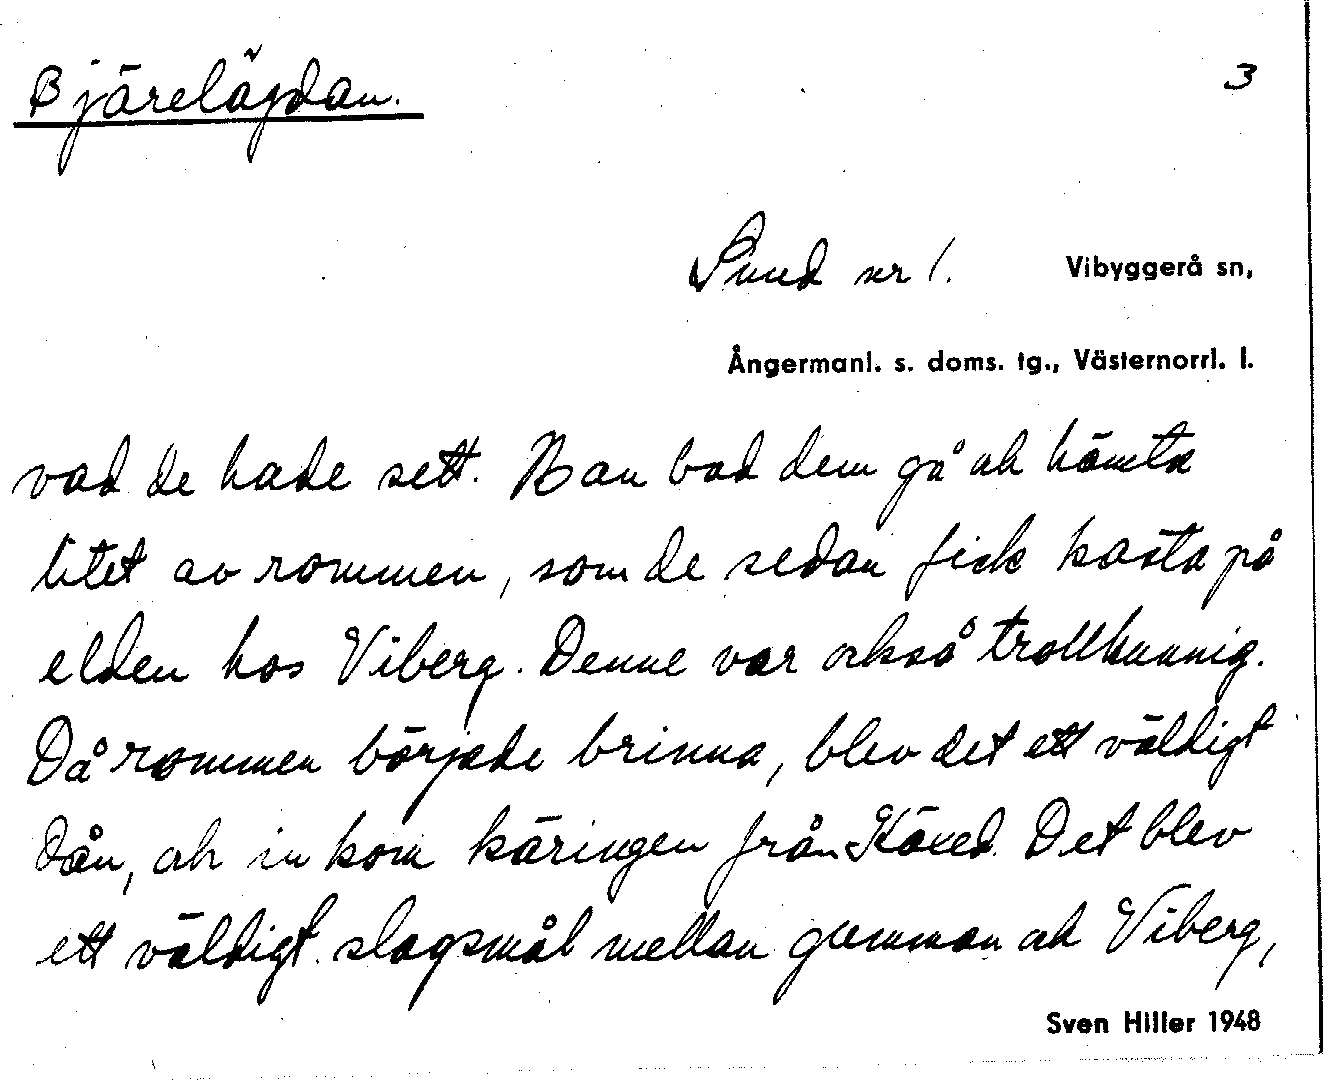 Bjärelägdan.
3
Sund nr 1. Vibyggerå sn,
Ångermanl. s. doms. tg., Västernorrl. l.
vad de hade sett. Han bad dem gå och hämta
litet av rommen, som de sedan fick kasta på
elden hos Viberg. Denne var också trollkunnig.
Då rommen började brinna, blev det ett väldigt
dån, och in kom käringen från Köxed. Det blev
ett väldigt slagsmål mellan gumman och Viberg,
Sven Hiller 1948